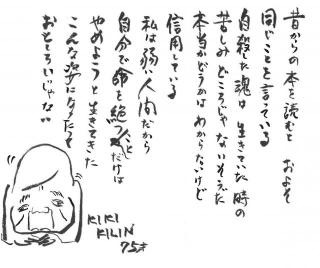 昔からの本を読むと およそ
同じことを言っている
自殺した魂は 生きていた時の
苦しみどころじゃないそうだ
本当かどうかは わからないけど
信用している
私は弱い人間だから
自分で命を絶つことだけは
やめようと生きてきた
こんな姿になったって
おもしろいじゃない
KIKI
KILIN
75才